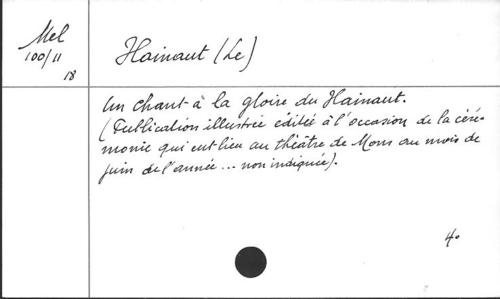 Mel
100/11
18
Hainaut (Le)
Un chant à la gloire du Hainaut.
(Publication illustrée éditée à l'occasion de la céré-
monie qui eut lieu au théâtre de Mons au mois de
juin de l'année ... non indiquée).
4°